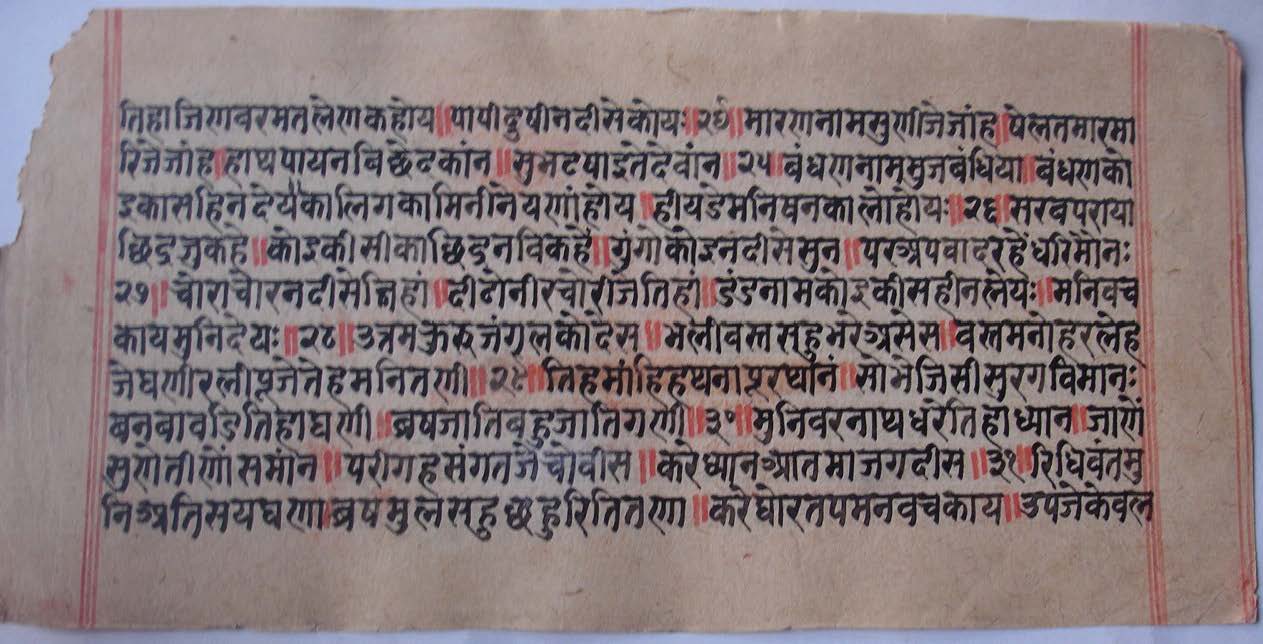 तिहा जिणवरमत लेण क होय ॥ पापी दुषी न दीसे कोयः ॥ २४ ॥ मारण नाम सुणीजे जांह ॥ षेलत मारमा
रिजे जांह ॥ हाथ पाय न विछेद कांन ॥ सुभट पाइ ते देवांन ॥ २५ ॥ बंधण नाम मुज बंधिया ॥ बंधण को
इकासहि न देयै कालिग कामिनी नेयणां होय ॥ हीयडे मनिषन कालो होयः ॥ २६ ॥ सरव पराया
छिद्र जु कहे ॥ कोइ कीसी का छिद्र न वि कहै ॥ गुंगो कोइ न दीसे सुन ॥ पर अपवाद रहे धरि मौनः
२७ ॥ चोरा चोर न दीसे जिहां ॥ दीदो नीर चोरीजे तिहां ॥ डंड नाम कोइ कीसही न लेयः ॥ मनि वच
काय मुनि देयः ॥ २८ ॥ उत्रम कुरु जंगल को देस ॥ भली वस्त सहु भरे असेस ॥ वस्त मनोहर लेह
जे घणी रली पूजे तेह मनि तणी ॥ २९ ॥ तिह मांहि हथनापूर थांनं ॥ सोभे जिसी सुरग विमानः
बन बावडि तिहा घणी ॥ ब्रष जाति बहु जाति गणी ॥ ३० ॥ मुनिवर नाथ धरे तिहां ध्यान ॥ जाणे
सुणे तीणो समांन ॥ परीगह संग तजे चोवीस ॥ करे ध्यांन आतमा जगदीस ॥ ३१ ॥ रिधिवंत मु
नि अतिसय घणा ब्रष मुले सहु छहु रिति तणा ॥ करे घोर तप मन वच काय ॥ उपजे केवल